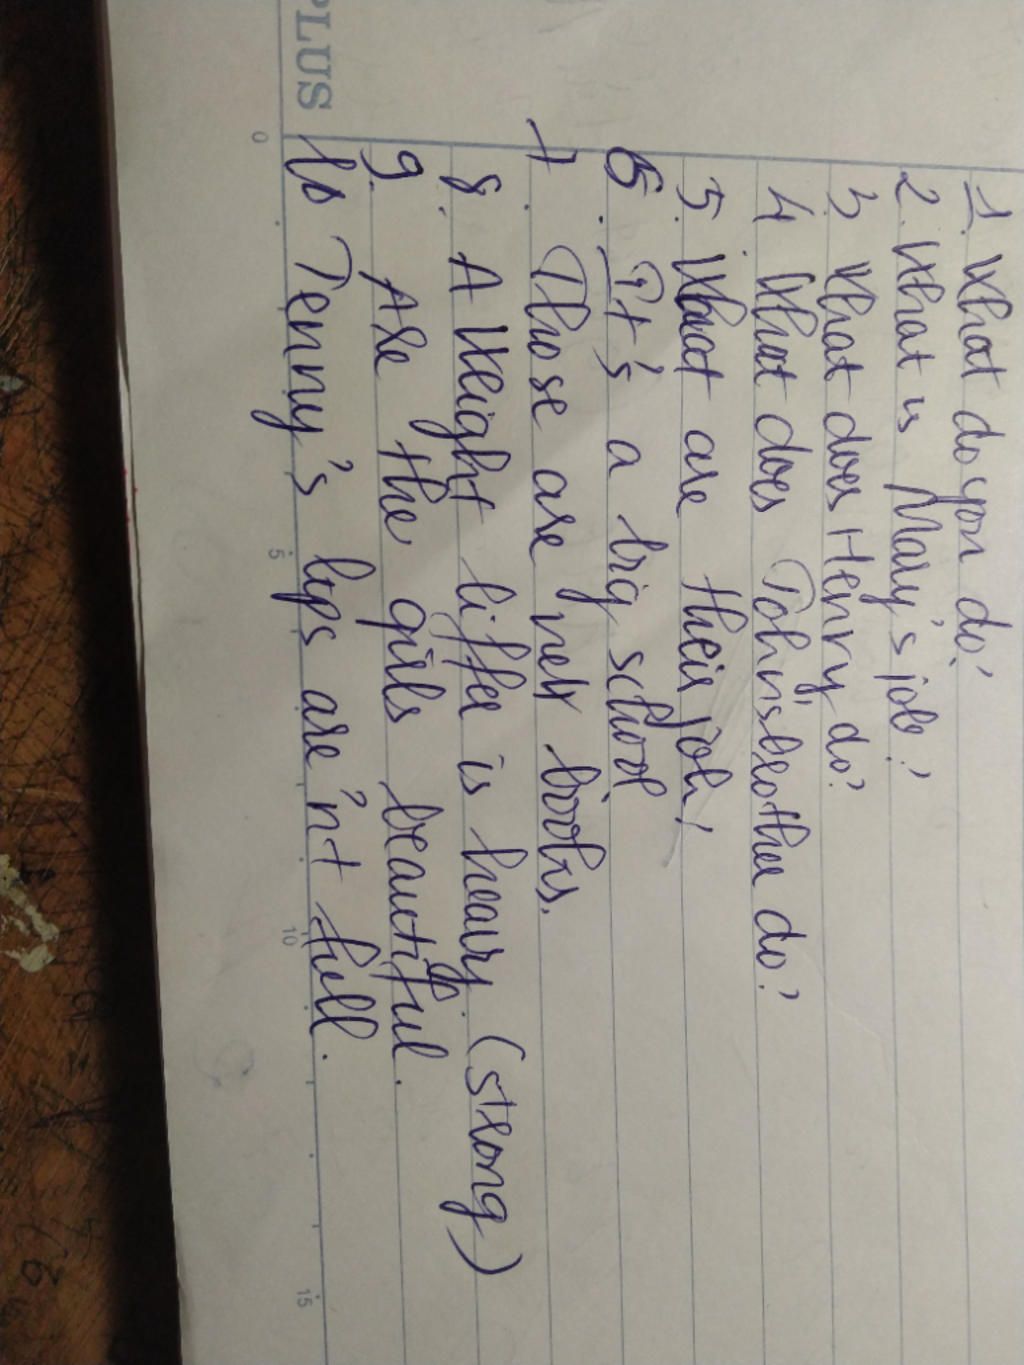 PLUS
1. What do you do?
2. What is Mary's job?
3 What does Henry do?
4 What does John's brother do?
5. What are their job?
6. It's a big school
7. Those are new books.
8. A Weight lifter is heavy. (strong)
9. Are the girls beautiful.
10 Jenny's lips are'nt full.
0 5 10 15